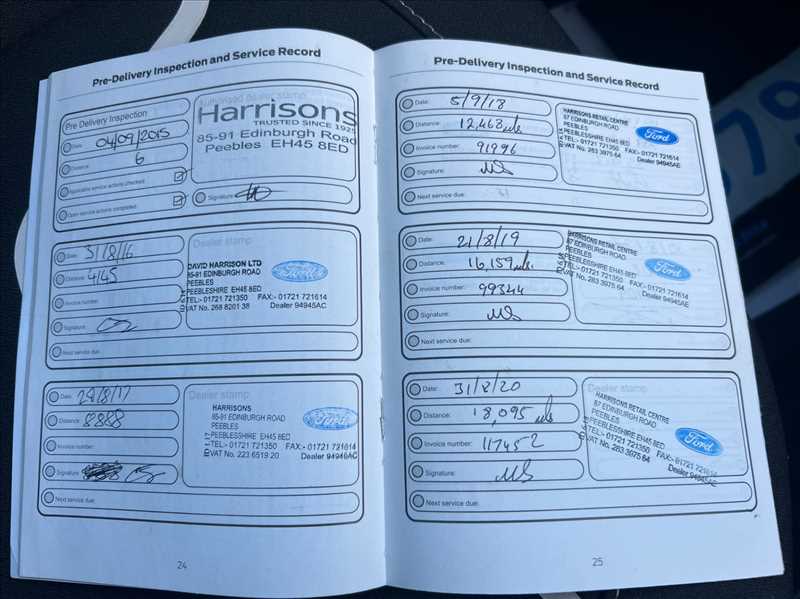 Pre-Delivery Inspection and Service Record
Pre Delivery Inspection
Date: 04/09/2015
Distance: 6
Applicable service actions checked:
Open service actions completed:
Authorised dealer stamp
Harrisons
TRUSTED SINCE 1925
85-91 Edinburgh Road
Peebles EH45 8ED
Signature:
Date: 31/8/16
Distance: 4145
Invoice number:
Signature:
Next service due:
Dealer stamp
DAVID HARRISON LTD
85-91 EDINBURGH ROAD
PEEBLES
PEEBLESHIRE EH45 8ED
TEL:- 01721 721350 FAX:- 01721 721614
VAT No. 268 8201 38 Dealer 94945AC
Ford
Date: 29/8/17
Distance: 8288
Invoice number:
Signature:
Next service due:
Dealer stamp
HARRISONS
85-91 EDINBURGH ROAD
PEEBLES
PEEBLESSHIRE EH45 8ED
TEL:- 01721 721350 FAX:- 01721 721614
VAT No. 223 6519 20 Dealer 94945AC
Ford
24
Pre-Delivery Inspection and Service Record
Date: 5/9/18
Distance: 12,463 mls
Invoice number: 91296
Signature: MS
Next service due:
HARRISONS RETAIL CENTRE
87 EDINBURGH ROAD
PEEBLES
PEEBLESSHIRE EH45 8ED
TEL:- 01721 721350 FAX:- 01721 721614
VAT No. 283 3975 64 Dealer 94945AE
Ford
Date: 21/8/19
Distance: 16,159 mls
Invoice number: 99344
Signature: MS
Next service due:
HARRISONS RETAIL CENTRE
87 EDINBURGH ROAD
PEEBLES
PEEBLESSHIRE EH45 8ED
TEL:- 01721 721350 FAX:- 01721 721614
VAT No. 283 3975 64 Dealer 94945AE
Ford
Date: 31/8/20
Distance: 18,095 mls
Invoice number: 117452
Signature: MS
Next service due:
Dealer stamp
HARRISONS RETAIL CENTRE
87 EDINBURGH ROAD
PEEBLES
PEEBLESSHIRE EH45 8ED
TEL:- 01721 721350 FAX:- 01721 721614
VAT No. 283 3975 64 Dealer 94945AE
Ford
25